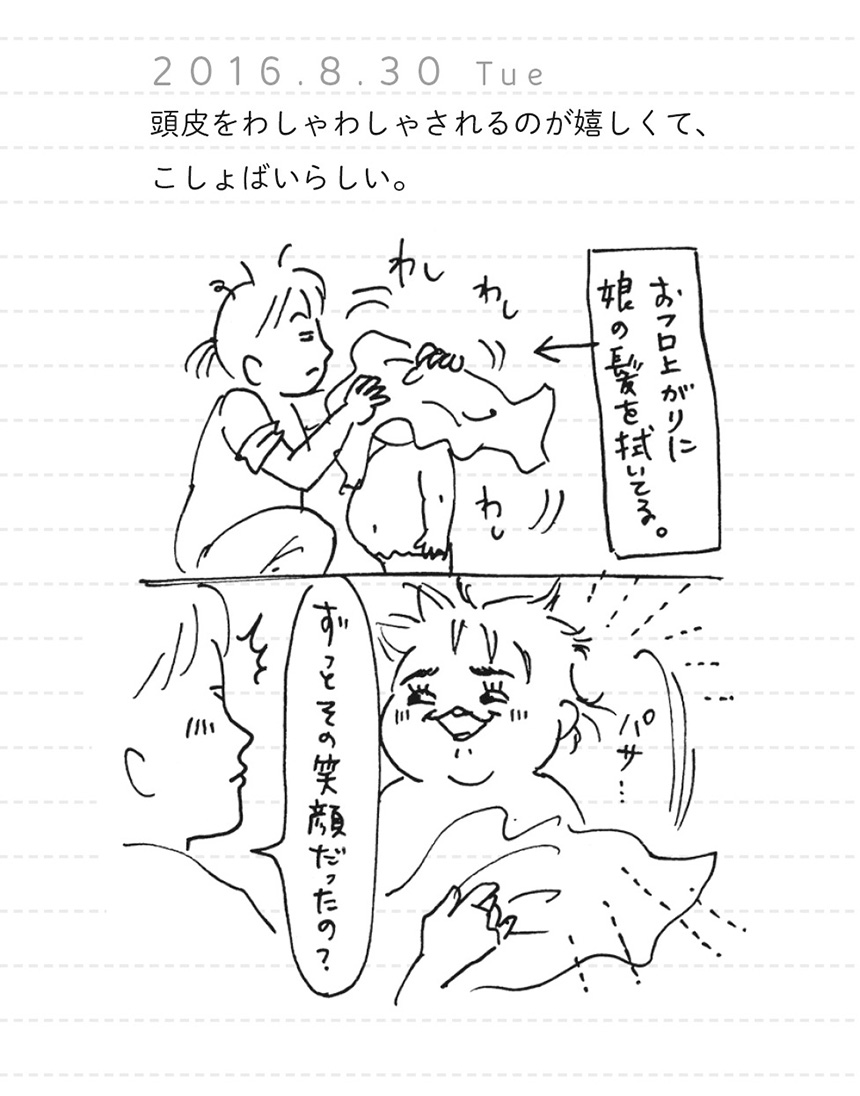 2016.8.30 Tue
頭皮をわしゃわしゃされるのが嬉しくて、
こしょばいらしい。
わし
わし
おフロ上がりに
娘の髪を拭いてる。
わし
ずっとその笑顔だったの?
パサ…